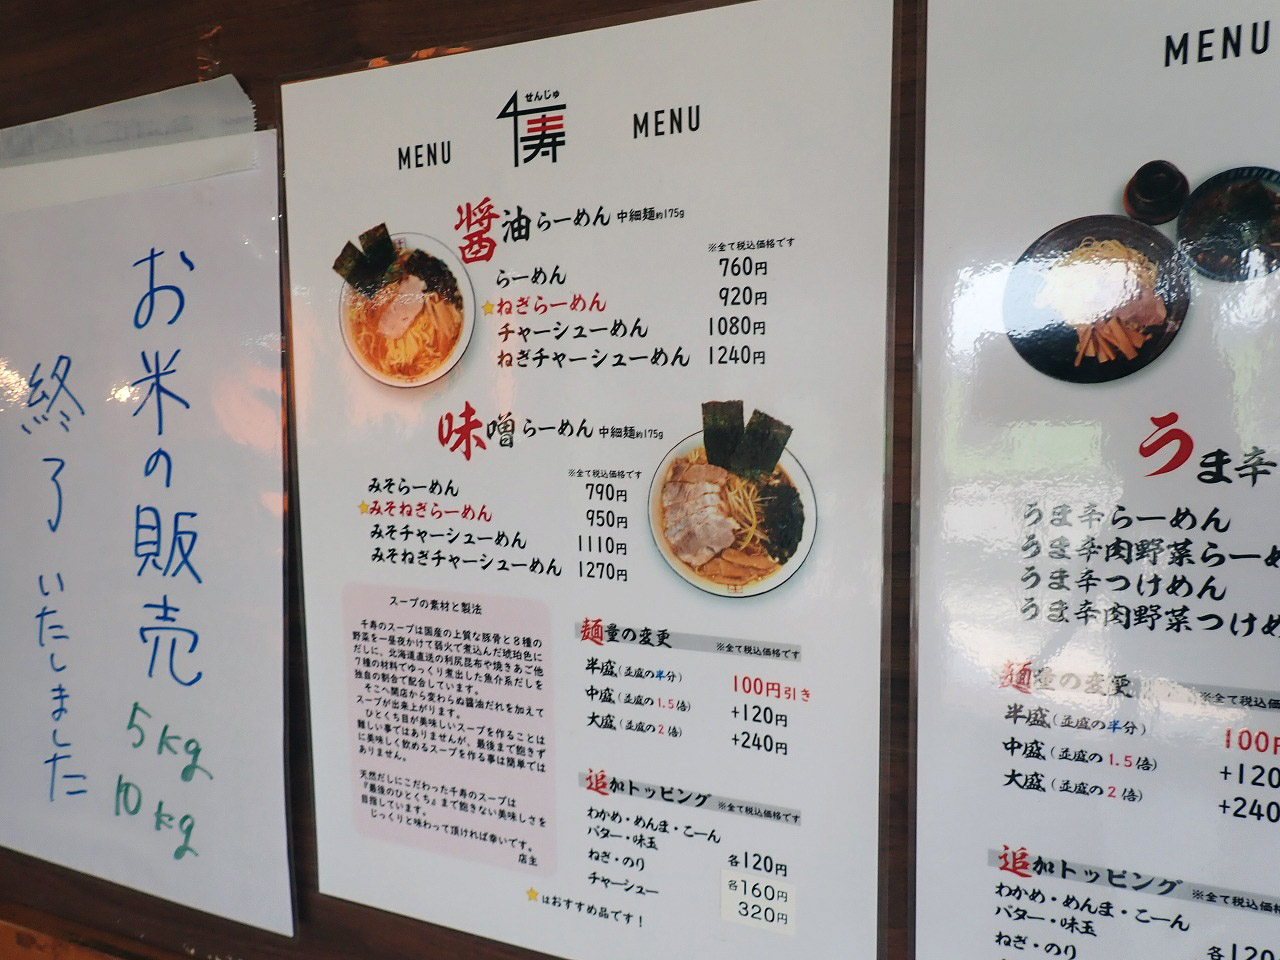 お米の販売
終了いたしました
5kg
10kg
せんじゅ
千寿
MENU
MENU
醤油らーめん 中細麺約175g
※全て税込価格です
らーめん 760円
ねぎらーめん 920円
チャーシューめん 1080円
ねぎチャーシューめん 1240円
味噌らーめん 中細麺約175g
※全て税込価格です
みそらーめん 790円
みそねぎらーめん 950円
みそチャーシューめん 1110円
みそねぎチャーシューめん 1270円
スープの素材と製法
千寿のスープは国産の上質な豚骨と8種の
野菜を一昼夜かけて弱火で煮込んだ琥珀色に
だしに、北海道直送の利尻昆布や焼きあご他
7種の材料でゆっくり煮出した魚介系だしを
独自の割合で配合しています。
そこへ開店から変わらぬ醤油だれを加えて
スープが出来上がります。
ひとくち目が美味しいスープを作ることは
難しい事ではありませんが、最後まで飽きず
に美味しく飲めるスープを作る事は簡単では
ありません。
天然だしにこだわった千寿のスープは
『最後のひとくち』まで飽きない美味しさを
目指しています。
じっくりと味わって頂ければ幸いです。
店主
麺量の変更 ※全て税込価格です
半盛(並盛の半分) 100円引き
中盛(並盛の1.5倍) +120円
大盛(並盛の2倍) +240円
追加トッピング ※全て税込価格です
わかめ・めんま・こーん
バター・味玉 各120円
ねぎ・のり 各160円
チャーシュー 320円
はおすすめ品です!
MENU
うま辛
うま辛らーめん
うま辛肉野菜らーめ
うま辛つけめん
うま辛肉野菜つけめ
麺量の変更 ※全て税込価
半盛(並盛の半分) 100円
中盛(並盛の1.5倍) +120
大盛(並盛の2倍) +240
追加トッピング ※全て税込価格
わかめ・めんま・こーん
バター・味玉 各120
ねぎ・のり